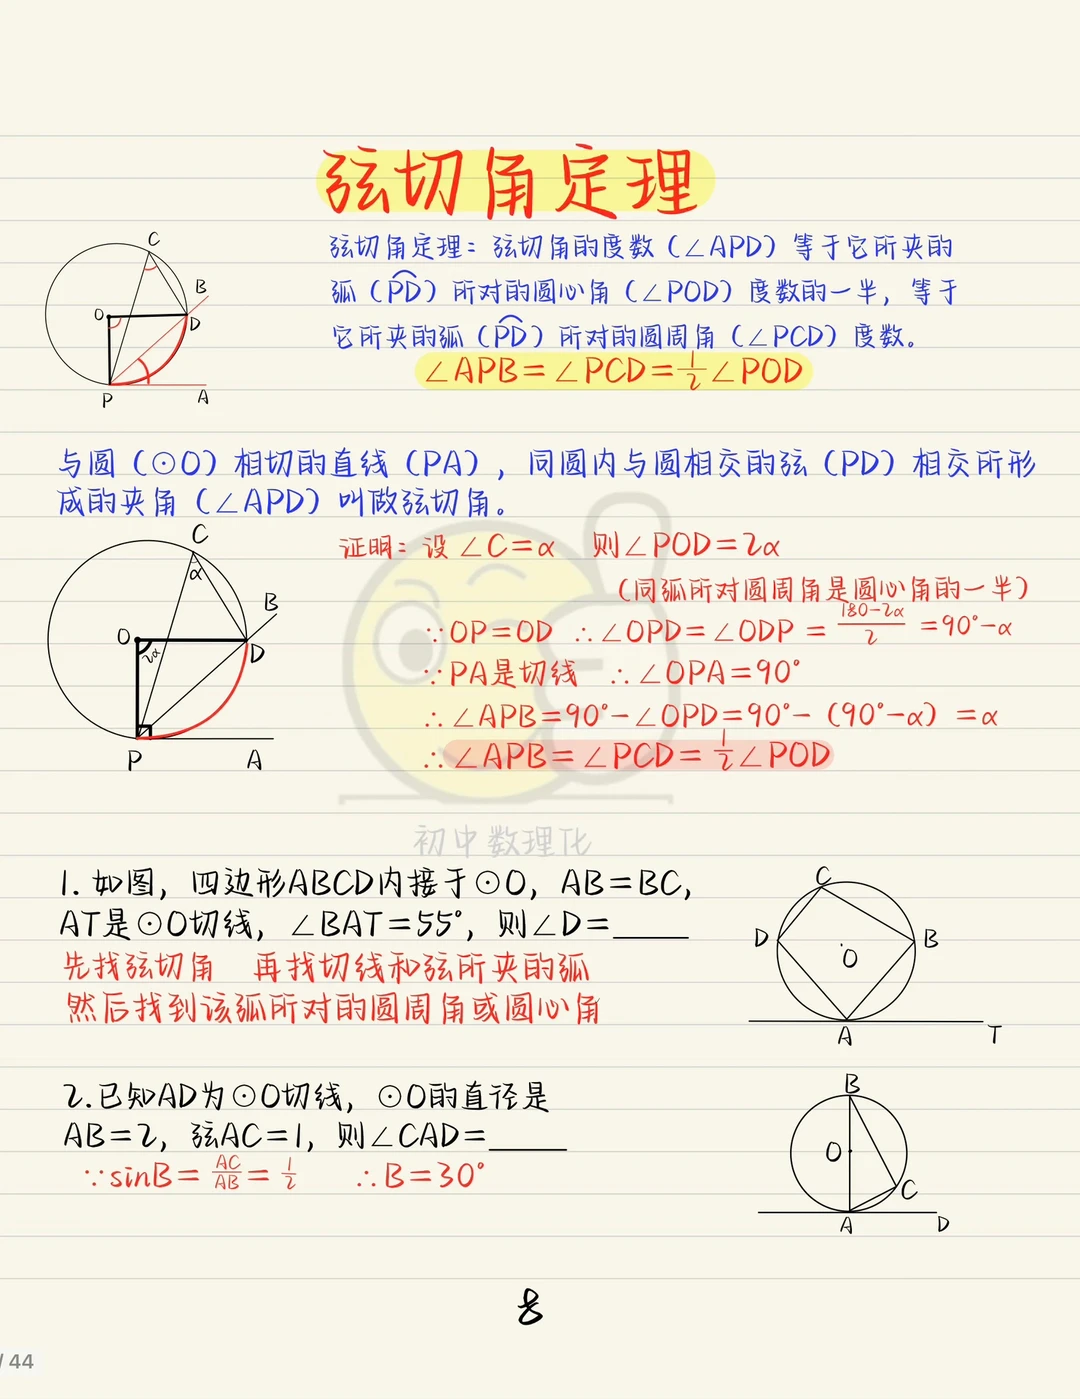 弦切角定理
弦切角定理：弦切角的度数（∠APD）等于它所夹的
弧（PD）所对的圆心角（∠POD）度数的一半，等于
它所夹的弧（PD）所对的圆周角（∠PCD）度数。
∠APB=∠PCD=1/2∠POD
C
B
O
D
P
A
与圆（⊙O）相切的直线（PA），同圆内与圆相交的弦（PD）相交所形
成的夹角（∠APD）叫做弦切角。
C
α
B
O
2α
D
P
A
证明：设∠C=α 则∠POD=2α
（同弧所对圆周角是圆心角的一半）
∵OP=OD ∴∠OPD=∠ODP=180-2α/2=90°-α
∵PA是切线 ∴∠OPA=90°
∴∠APB=90°-∠OPD=90°-（90°-α）=α
∴∠APB=∠PCD=1/2∠POD
初中数理化
1. 如图，四边形ABCD内接于⊙O，AB=BC,
AT是⊙O切线，∠BAT=55°，则∠D=_____
先找弦切角 再找切线和弦所夹的弧
然后找到该弧所对的圆周角或圆心角
C
D
B
O
A
T
2.已知AD为⊙O切线，⊙O的直径是
AB=2，弦AC=1，则∠CAD=_____
∵sinB=AC/AB=1/2 ∴B=30°
B
O
C
A
D
8
/ 44